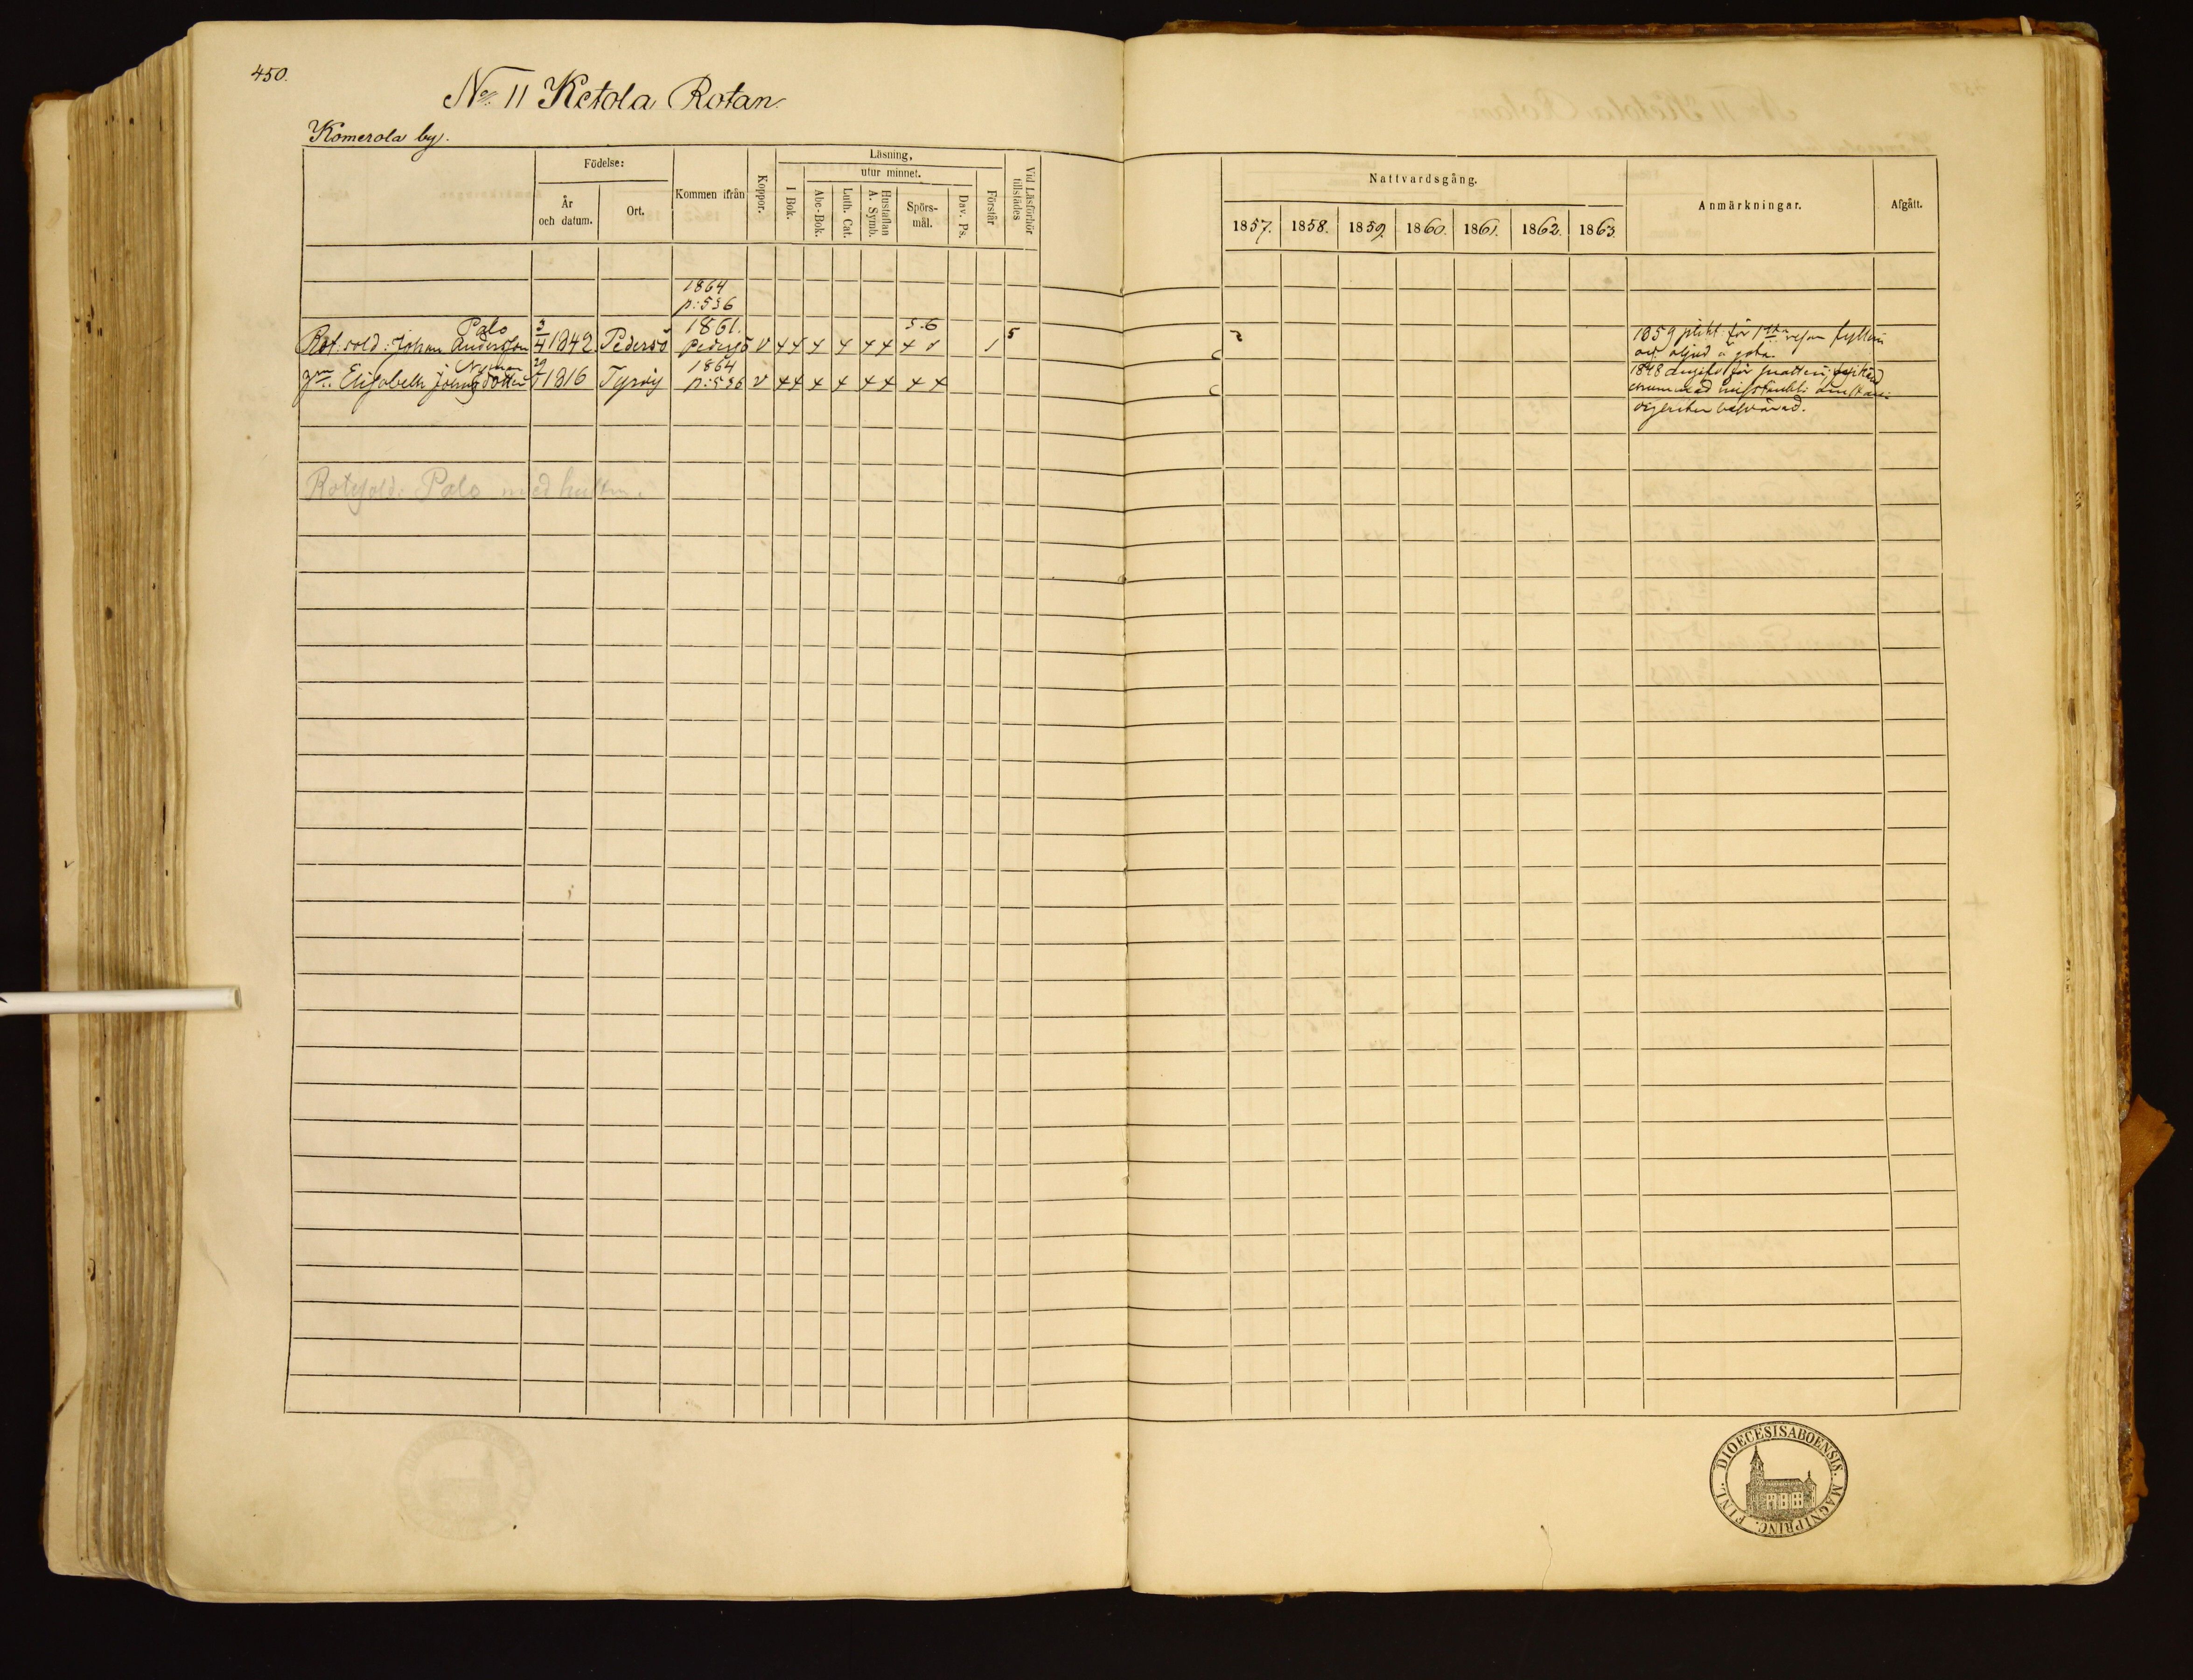 450.
No. 11 Ketola Rotan.
Komerola by.
Födelse:
År och datum.
Ort.
Kommen ifrån
Koppor.
Läsning,
utur minnet.
I Bok.
Abc-Bok.
Luth. Cat.
Hustaflan A. Symb.
Spörsmål.
Dav. Ps.
Förstår
Vid Läsförhör tillstädes
Nattvardsgång.
1857. 1858. 1859. 1860. 1861. 1862. 1863.
Anmärkningar.
Afgått.
1864
p: 536
Palo 1861. 5.6
Rot: sold: Johan Andersson 3/4 1842 Pedersö Pedersö v 1 5
1859 plikt för 1sta resan fylleri
och oljud å gata.
Nyman 1864
Elisabeth Johansdotter 1816 Tyrvis p: 536 v
1848 för
Rotesold: Palo med hustru.
DIOECESIS ABOENSIS. MAGNI PRINC. FINL.